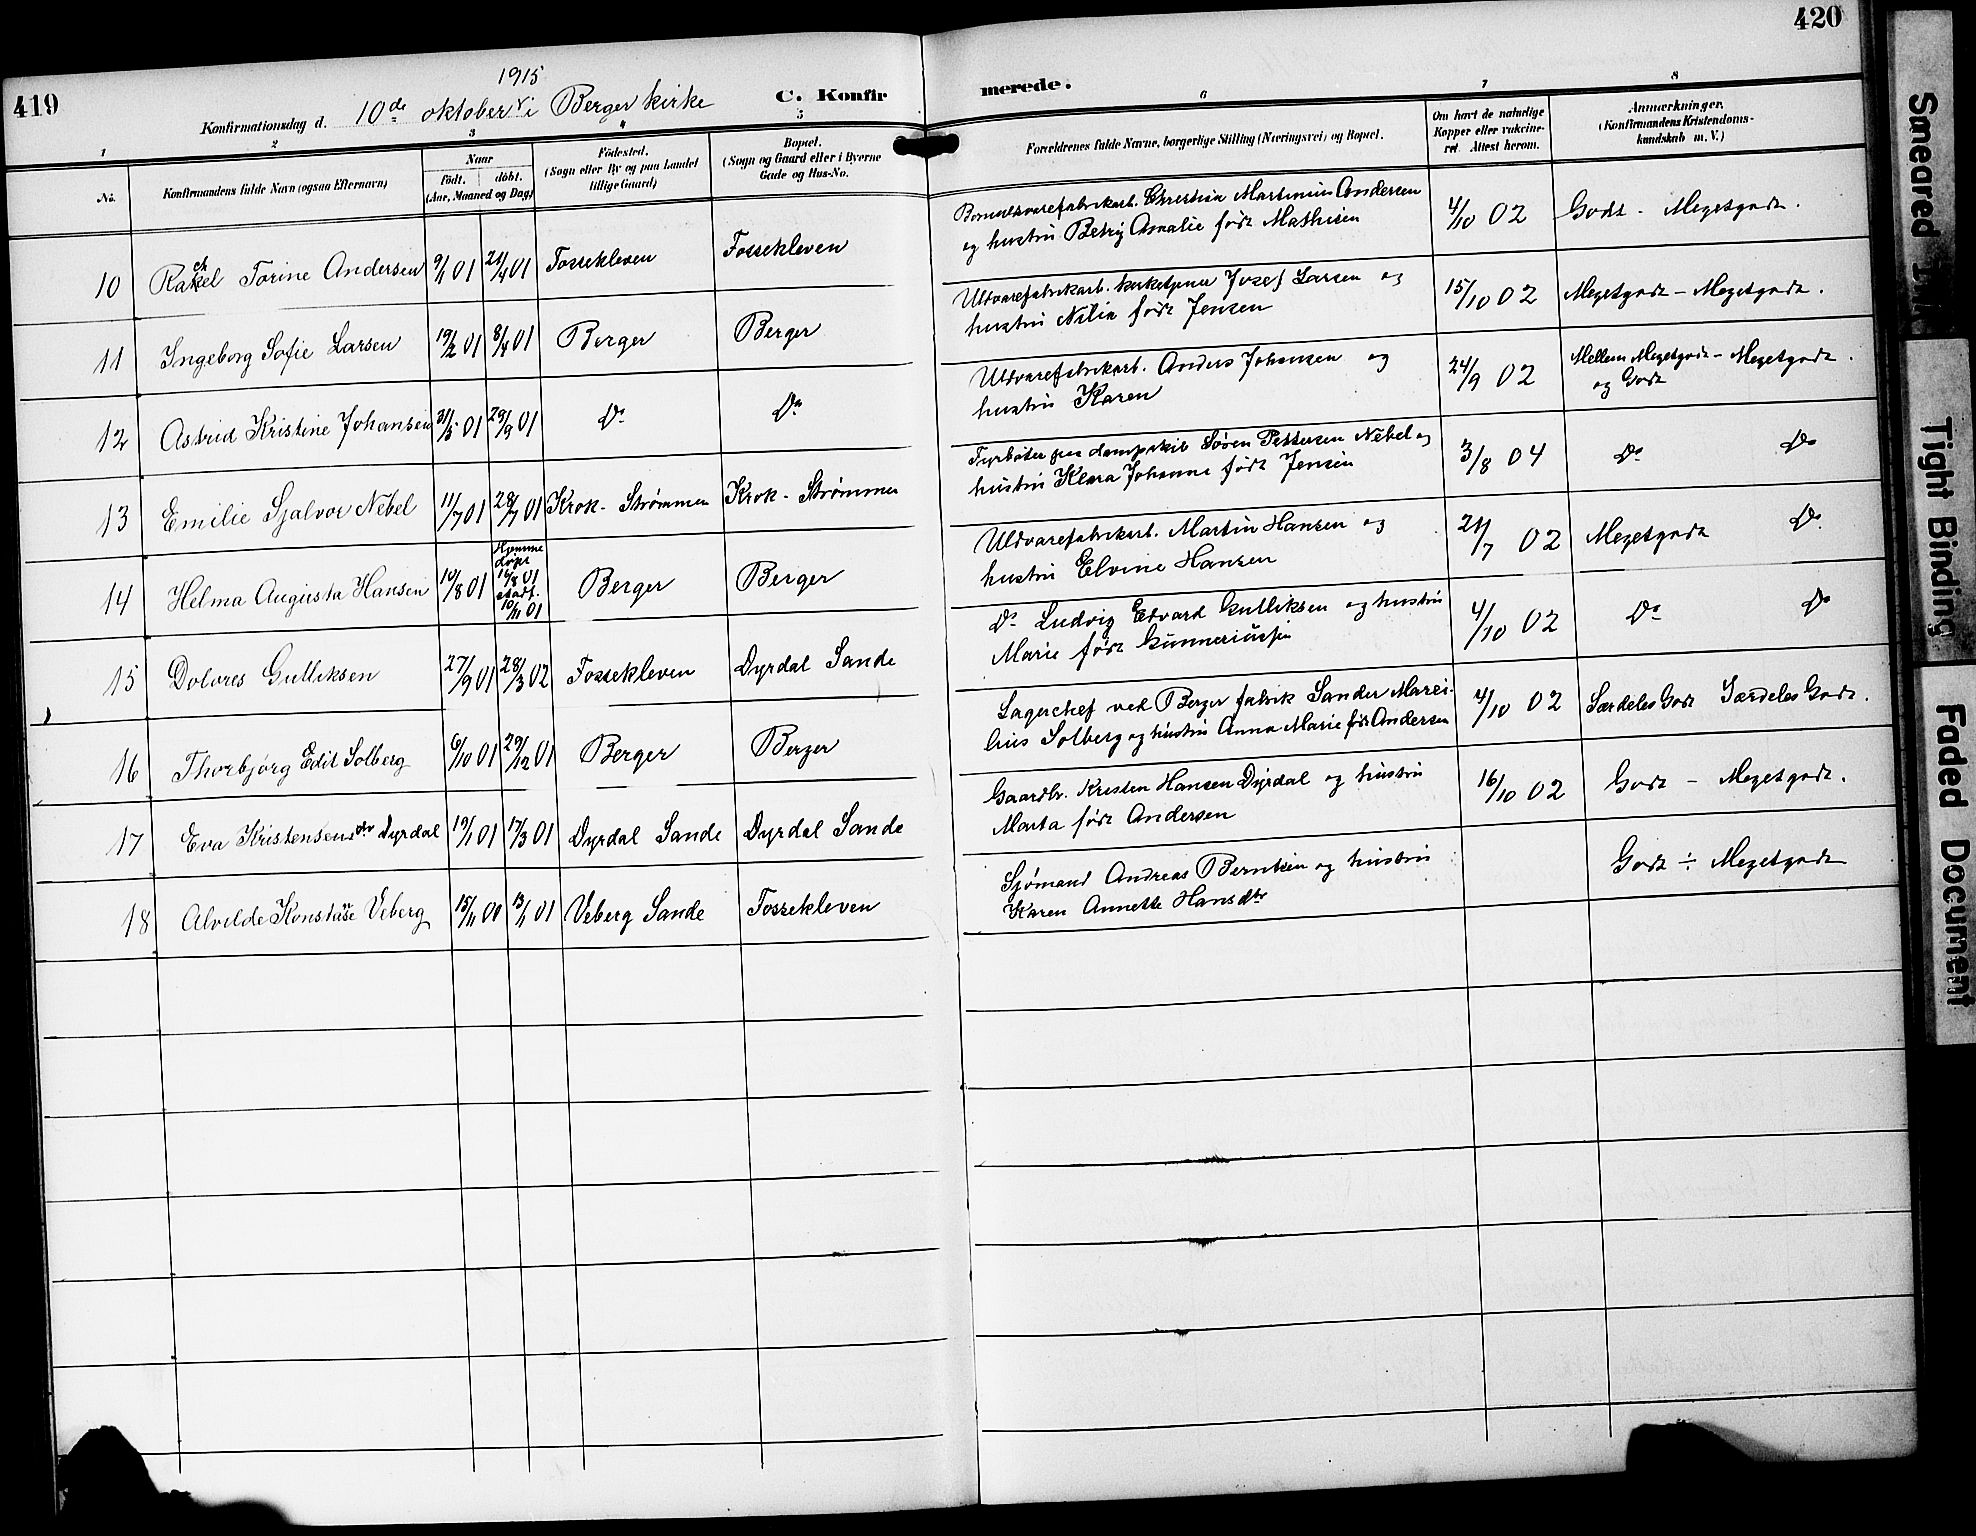 419
1915
Konfirmationsdag d. 10de oktober i Berger kirke
C. Konfir
merede.
420
1 2 3 4 5 6 7 8
No.
Konfirmandens fulde Navn (ogsaa Efternavn)
Naar
født. døbt.
(Aar, Maaned og Dag)
Fødested.
(Sogn eller By og paa Landet
tillige Gaard)
Bopæl.
(Sogn og Gaard eller i Byerne
Gade og Hus-No.
Forældrenes fulde Navne, borgerlige Stilling (Næringsvei) og Bopæl.
Om havt de naturlige
Kopper eller vakcine-
ret. Attest herom.
Anmærkninger.
(Konfirmandens Kristendoms-
kundskab m. V.)
10 Rakel Torine Andersen 9/1 01 21/4 01 Fossekleven Fossekleven
Bomuldsvarefabrikarb. Christian Martinius Andersen
og hustru Betzy Amalie født Mathisen
4/10 02 Godt - Megetgodt.
11 Ingeborg Sofie Larsen 19/2 01 8/4 01 Berger Berger
Uldvarefabrikarb. kirketjener Josef Larsen og
hustru Nilia født Jensen
15/10 02 Megetgodt - Megetgodt.
12 Astrid Kristine Johansen 31/5 01 29/9 01 Do Do
Uldvarefabrikarb. Anders Johansen og
hustru Karen
24/9 02 Mellem Megetgodt - Megetgodt.
og Godt
13 Emilie Sjalvor Nebel 11/7 01 28/7 01 Krok - Strømmen Krok - Strømmen
Fyrbøter paa dampskib Søren Pettersen Nebel og
hustru Klara Johanne født Jensen
3/8 04 Do Do
14 Helma Augusta Hansen 10/8 01 Hjemme
døpt
16/8 01
stadf.
10/11 01 Berger Berger
Uldvarefabrikarb. Martin Hansen og
hustru Elvine Hansen
21/7 02 Megetgodt Do
15 Dolores Gulliksen 27/9 01 28/3 02 Fossekleven Dyrdal Sande
Do Ludvig Edvard Gulliksen og hustru
Marie født Gunneriusen
4/10 02 Do Do
16 Thorbjørg Edit Solberg 6/10 01 29/12 01 Berger Berger
Lagerchef ved Berger fabrik Sander Marei-
lius Solberg og hustru Anna Marie født Andersen
4/10 02 Særdeles Godt Særdeles Godt.
17 Eva Kristensendtr Dyrdal 19/1 01 17/3 01 Dyrdal Sande Dyrdal Sande
Gaardbr. Kristen Hansen Dyrdal og hustru
Marta født Andersen
16/10 02 Godt - Megetgodt.
18 Alvilde Konstase Veberg 15/11 00 13/1 01 Veberg Sande Fossekleven
Sjømand Andreas Berntsen og hustru
Karen Annette Hansdtr
Godt ÷ Megetgodt
Smeared
Tight Binding
Faded Document